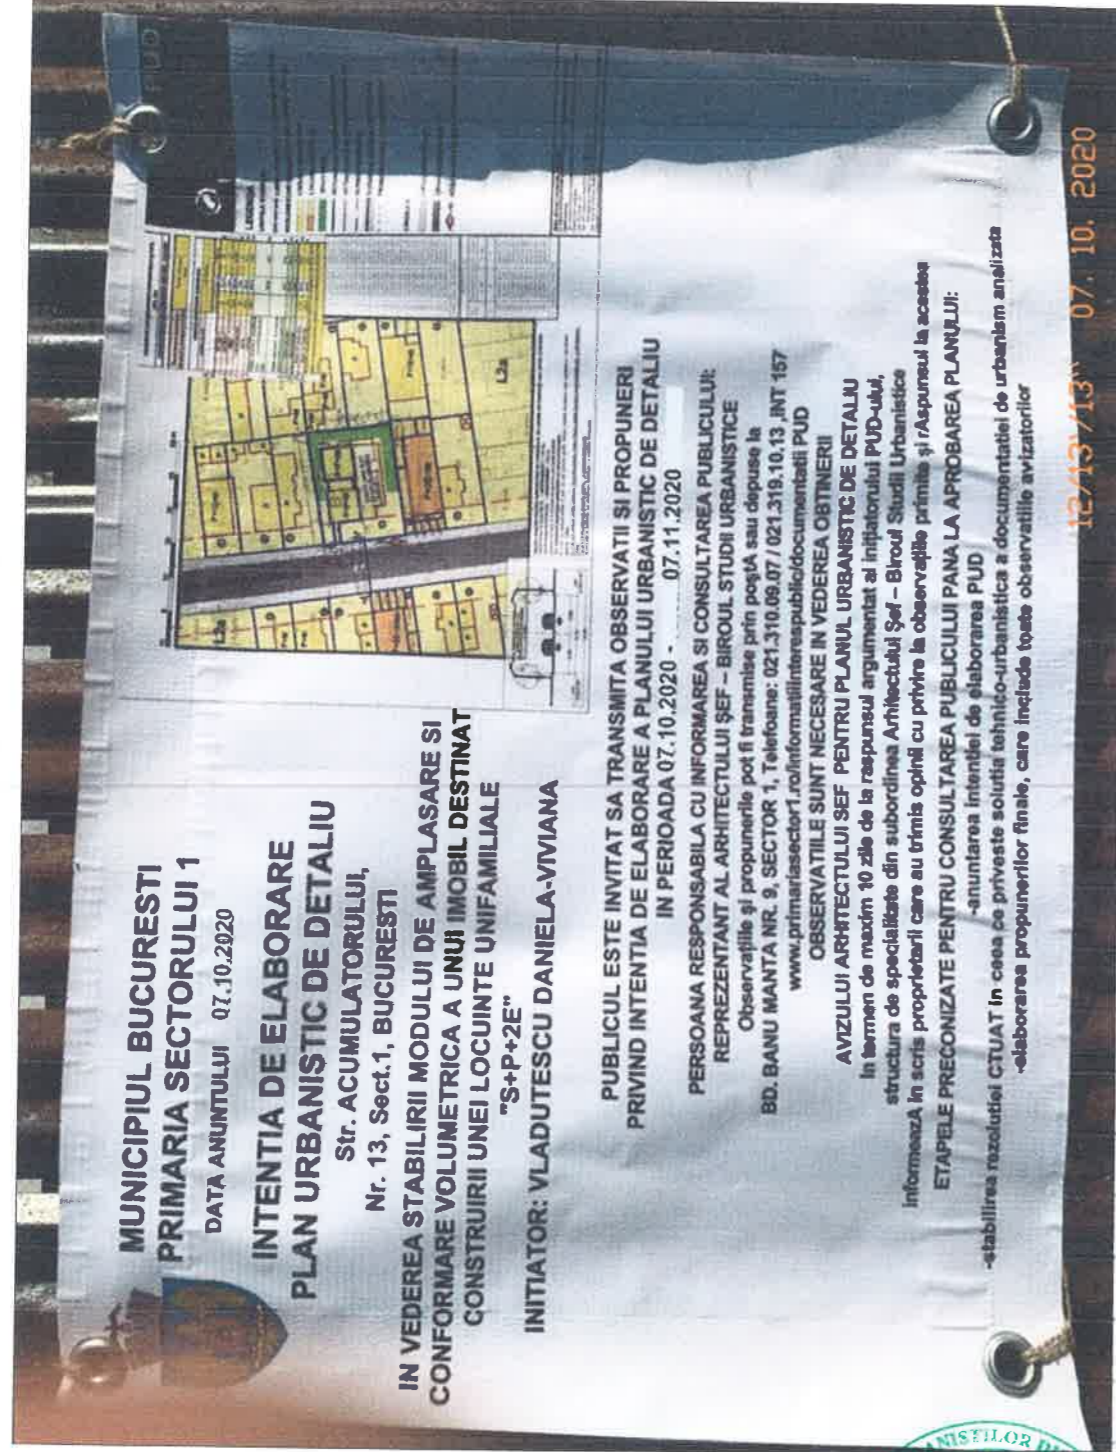 MUNICIPIUL BUCURESTI
PRIMARIA SECTORULUI 1
DATA ANUNTULUI 07.10.2020
INTENTIA DE ELABORARE
PLAN URBANISTIC DE DETALIU
Str. ACUMULATORULUI,
Nr. 13, Sect.1, BUCURESTI
IN VEDEREA STABILIRII MODULUI DE AMPLASARE SI
CONFORMARE VOLUMETRICA A UNUI IMOBIL DESTINAT
CONSTRUIRII UNEI LOCUINTE UNIFAMILIALE
"S+P+2E"
INITIATOR: VLADUTESCU DANIELA-VIVIANA
L2a
L2a
PUBLICUL ESTE INVITAT SA TRANSMITA OBSERVATII SI PROPUNERI
PRIVIND INTENTIA DE ELABORARE A PLANULUI URBANISTIC DE DETALIU
IN PERIOADA 07.10.2020 - 07.11.2020
PERSOANA RESPONSABILA CU INFORMAREA SI CONSULTAREA PUBLICULUI:
REPREZENTANT AL ARHITECTULUI ȘEF – BIROUL STUDII URBANISTICE
Observațiile și propunerile pot fi transmise prin poștA sau depuse la
BD. BANU MANTA NR. 9, SECTOR 1, Telefoane: 021.310.09.07 / 021.319.10.13 ,INT 157
www.primariasector1.ro/informatiiinterespublic/documentatii PUD
OBSERVATIILE SUNT NECESARE IN VEDEREA OBTINERII
AVIZULUI ARHITECTULUI SEF PENTRU PLANUL URBANISTIC DE DETALIU
In termen de maxim 10 zile de la raspunsul argumentat al inițiatorului PUD-ului,
structura de specialitate din subordinea Arhitectului Șef – Biroul Studii Urbanistice
informeazA în scris proprietarii care au trimis opinii cu privire la observațiile primite și rAspunsul la acestea
ETAPELE PRECONIZATE PENTRU CONSULTAREA PUBLICULUI PANA LA APROBAREA PLANULUI:
-anuntarea intentiei de elaborarea PUD
-stabilirea rezolutiei CTUAT in ceea ce priveste solutia tehnico-urbanistica a documentatiei de urbanism analizata
-elaborarea propunerilor finale, care include toate observatiile avizatorilor
12/13\/13" 07. 10. 2020